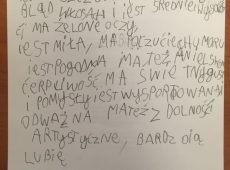 BLĄD WŁOSAH I JEST ŚREDNIEJ WYSO
CI MA ZELONE OCZY
JEST MIŁA, MA POCZUCIE HUMORU
JEST POGODNA MA TEŻ ANIELSKĄ
CERPLIWOŚĆ MA ŚWIETNE
I POMYSŁY JEST WYSPORTOWANA
ODWAŻNA MA TEŻ ZDOLNOŚ
ARTYSTYCZNE, BARDZO JĄ
LUBIĘ